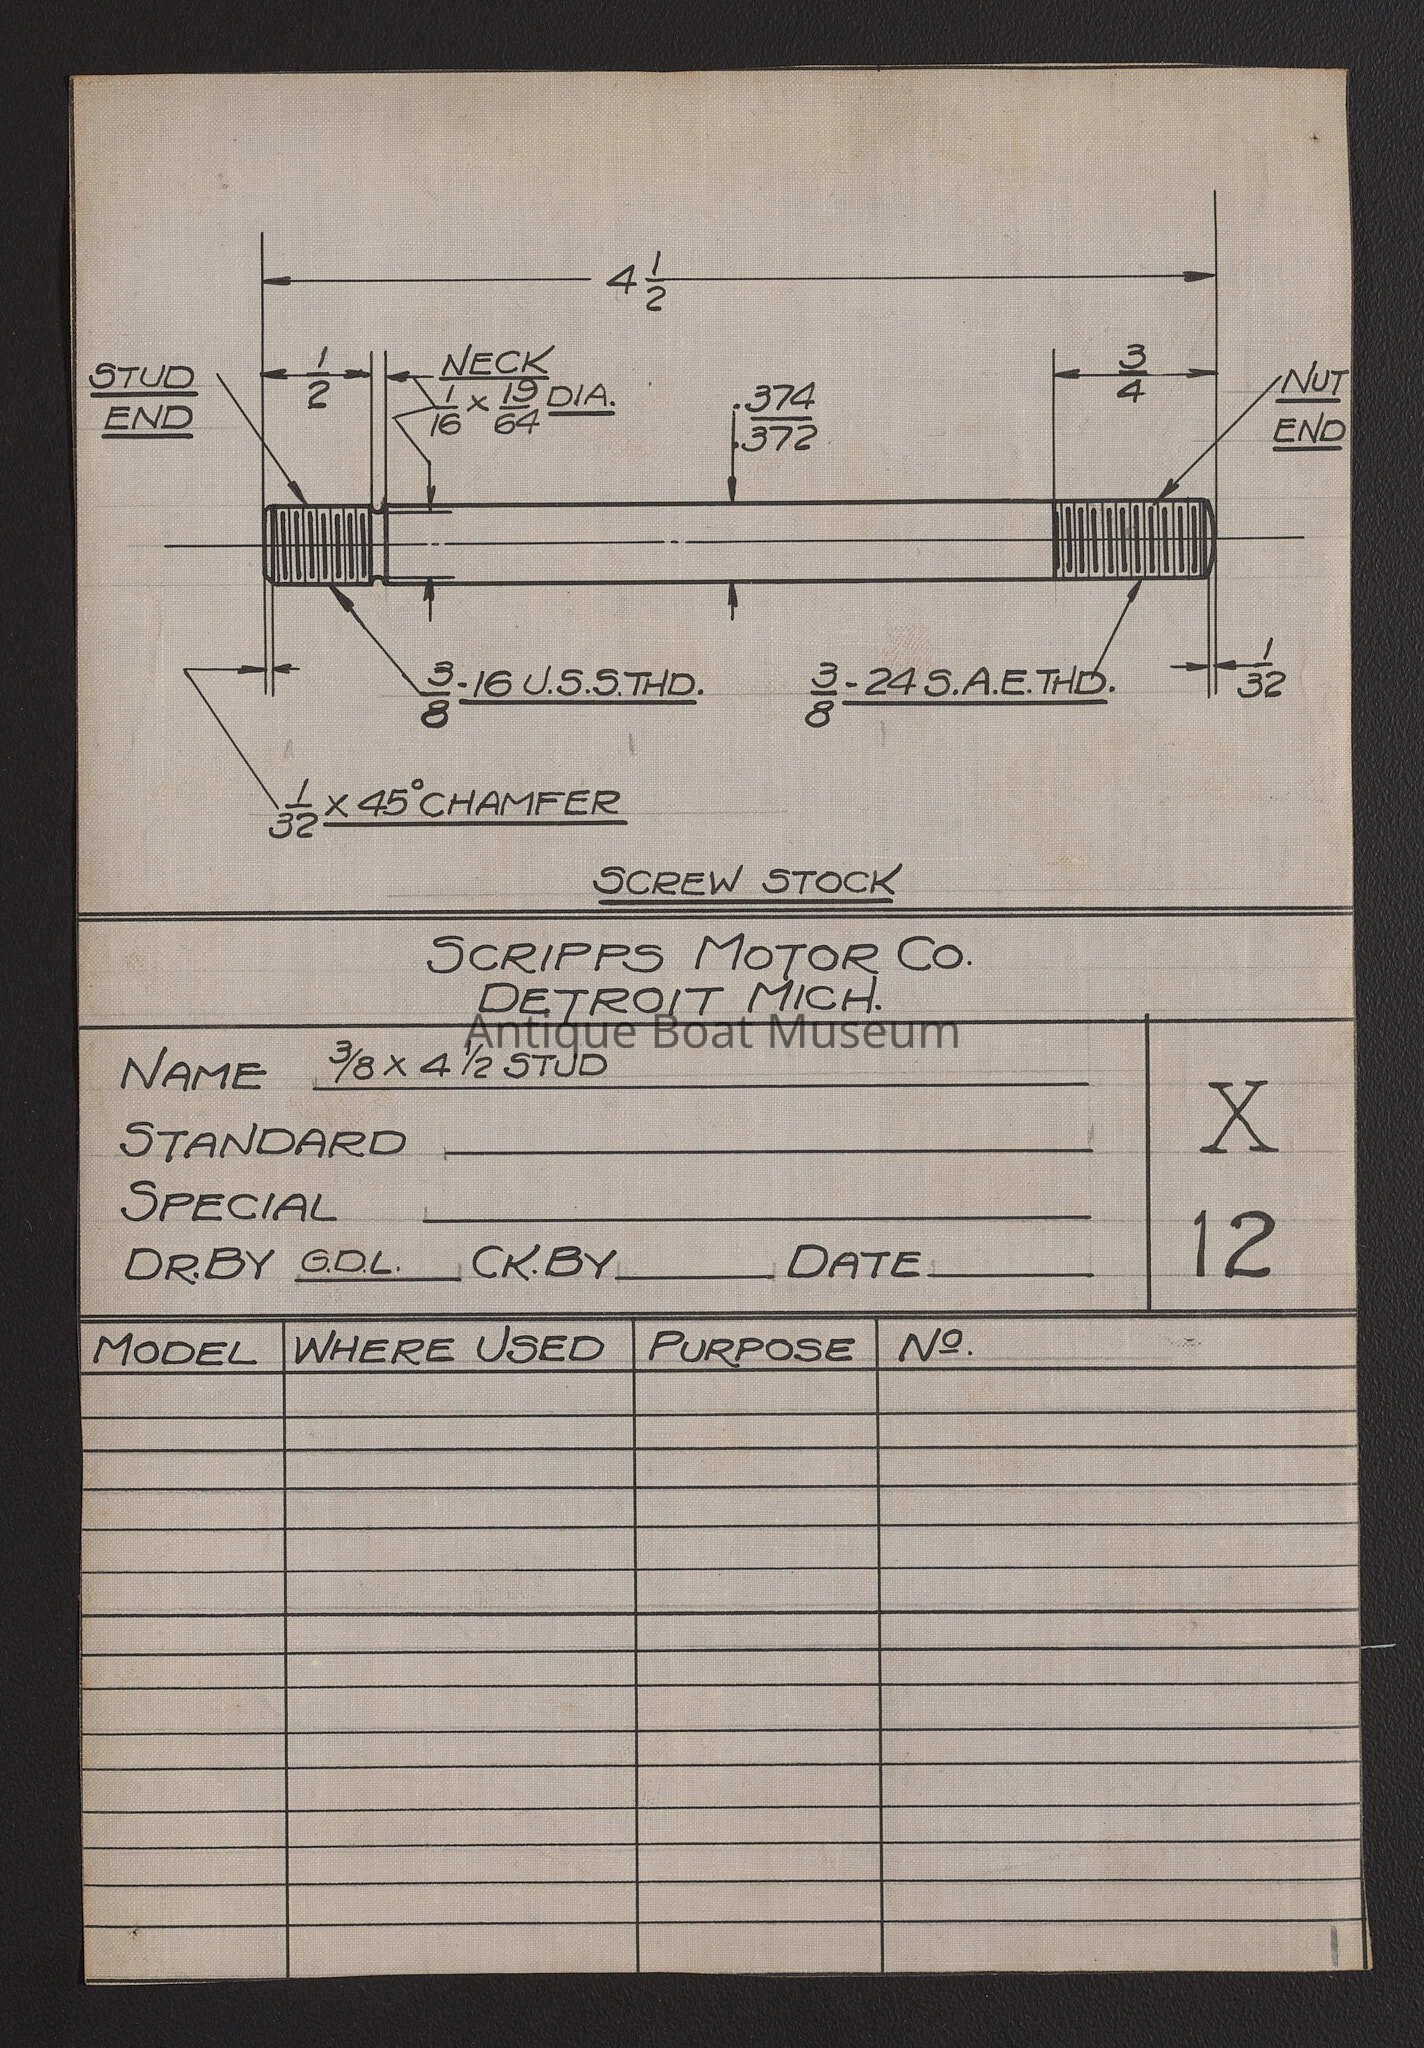 4 1/2
1/2
NECK
1/16 x 19/64 DIA.
.374
.372
3/4
STUD
END
NUT
END
3/8-16 U.S.S. THD.
3/8-24 S.A.E. THD.
1/32
1/32 x 45° CHAMFER
SCREW STOCK
SCRIPPS MOTOR CO.
DETROIT MICH.
Antique Boat Museum
NAME 3/8 x 4 1/2 STUD
STANDARD
SPECIAL
DR.BY G.D.L. CK.BY DATE
X
12
MODEL WHERE USED PURPOSE No.